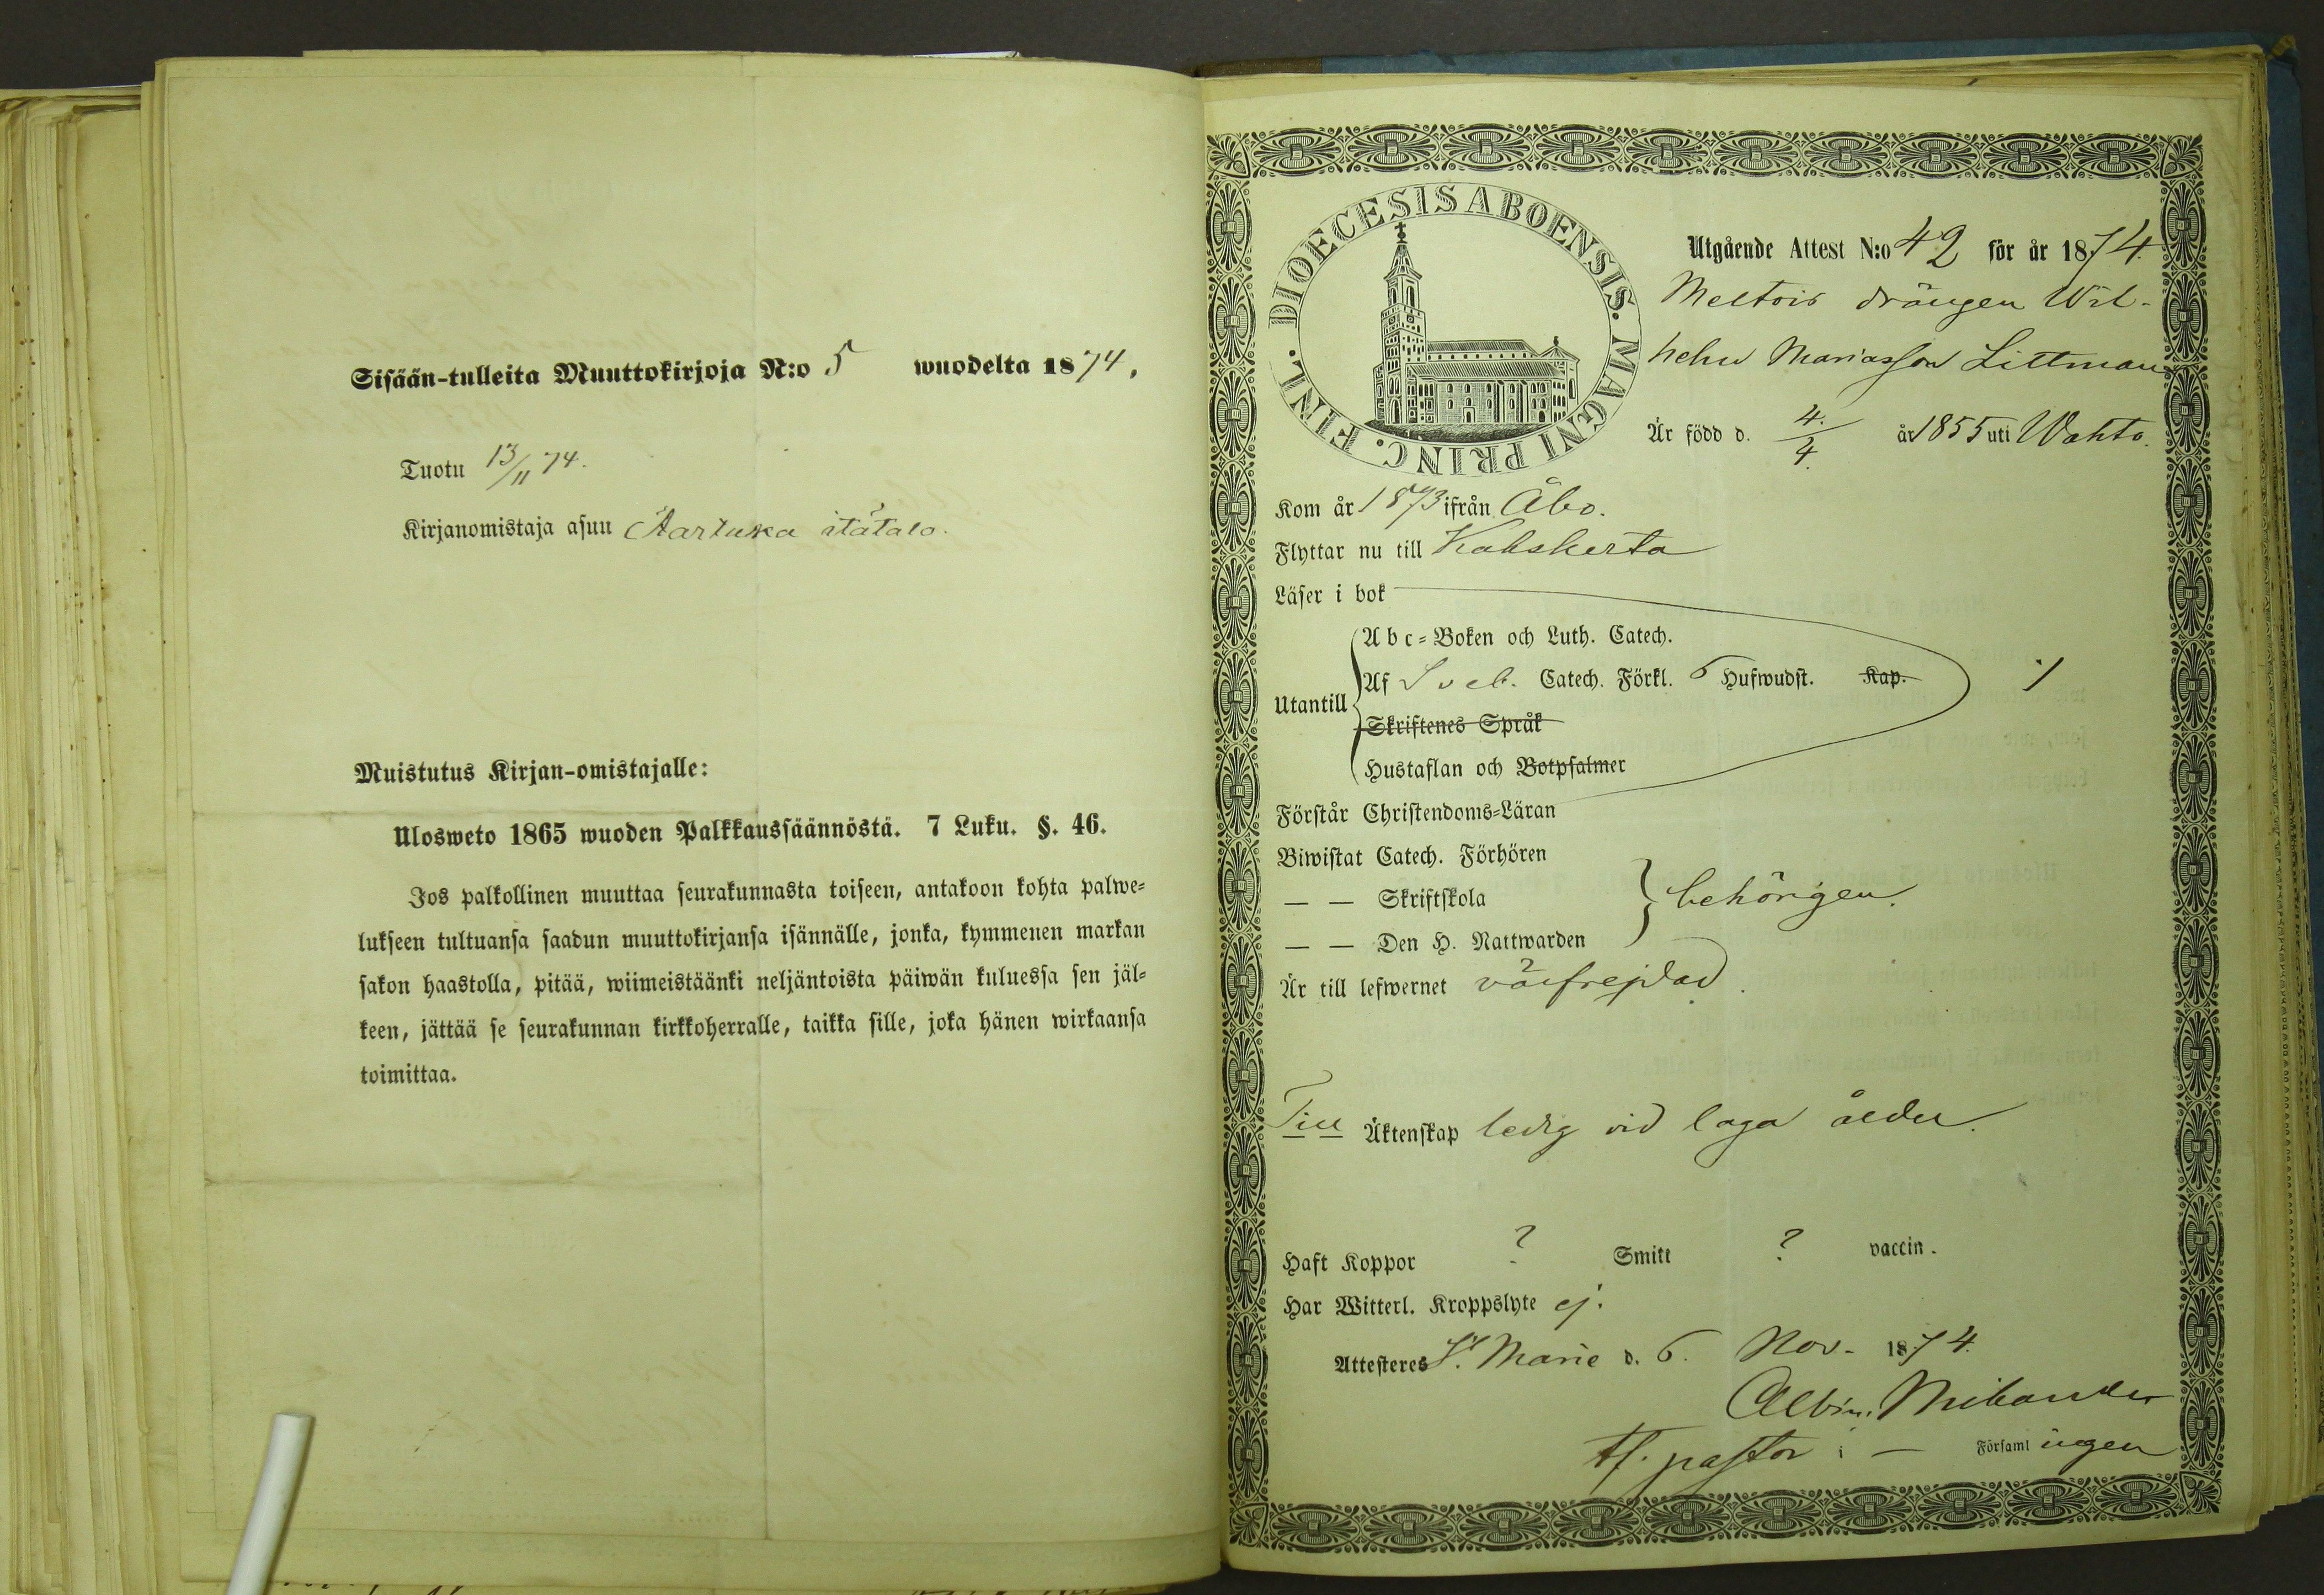 Sisään-tulleita Muuttokirjoja N:o 5 wuodelta 1874.
Tuotu 13/11 74.
Kirjanomistaja asuu Aartuka itätalo.
Muistutus Kirjan-omistajalle:
Ulosweto 1865 wuoden Palkkaussäännöstä. 7 Luku. §. 46.
Jos palkollinen muuttaa seurakunnasta toiseen, antakoon kohta palwe=
lukseen tultuansa saadun muuttokirjansa isännälle, jonka, kymmenen markan
sakon haastolla, pitää, wiimeistäänki neljäntoista päiwän kuluessa sen jäl=
keen, jättää se seurakunnan kirkkoherralle, taikka sille, joka hänen wirkaansa
toimittaa.
DIOECESIS ABOENSIS. MAGNI PRINC. FINL.
Utgående Attest N:o 42 för år 1874.
Meltois drängen Wil-
helm Mariasson Littman
Är född d. 4./4. år 1855 uti Wahto.
Kom år 1873 ifrån Åbo.
Flyttar nu till Kakskerta
Läser i bok
Abc=Boken och Luth. Catech.
Utantill Af Sveb. Catech. Förkl. 6 Hufwudst. Kap.
Skriftenes Språk
Hustaflan och Botpsalmer
Förstår Christendoms=Läran
Biwistat Catech. Förhören
— — Skriftskola behörigen.
— — Den H. Nattwarden
Är till lefwernet välfrejdad.
Till Äktenskap ledig vid laga ålder.
Haft Koppor ? Smitt ? vaccin.
Har Witterl. Kroppslyte ej.
Attesteres St. Marie d. 6. Nov. 1874.
Albin. Mikander
tf. pastor i — Församlingen